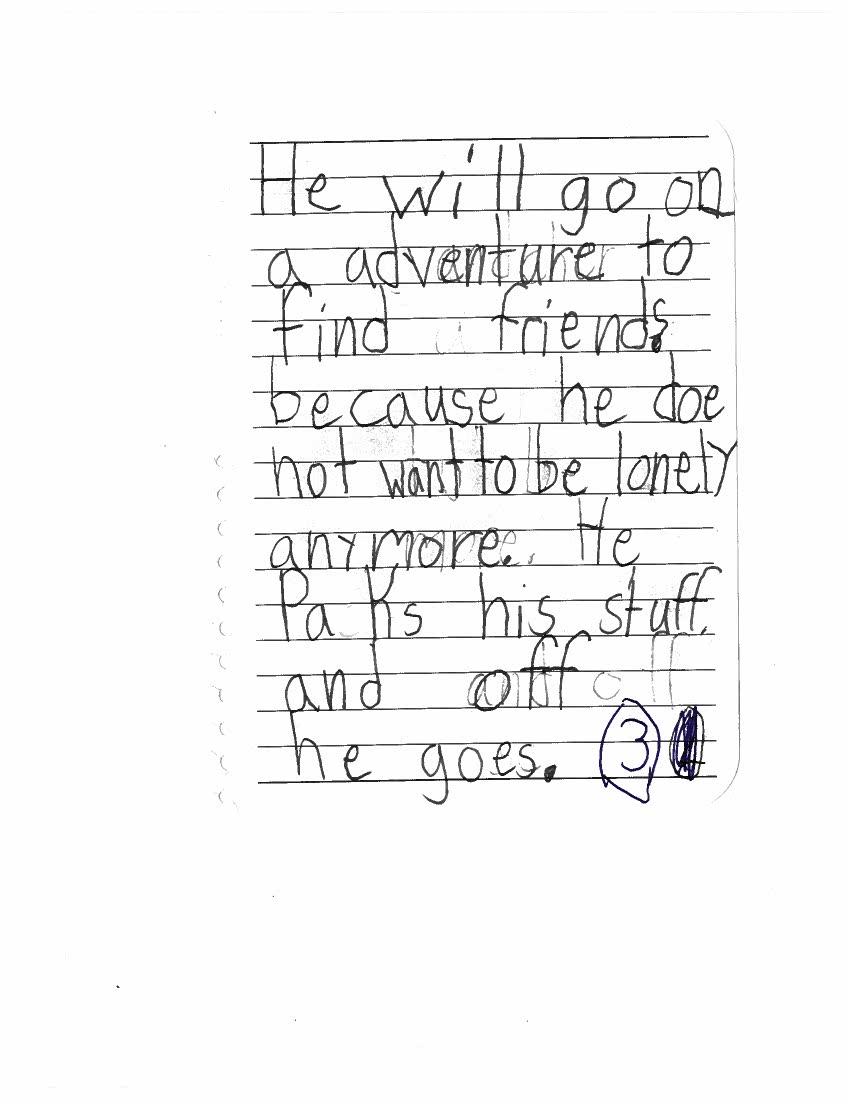 He will go on
a adventure to
find friends
because he doe
not want to be lonely
anymore. He
Paks his stuff.
and off
he goes. 3